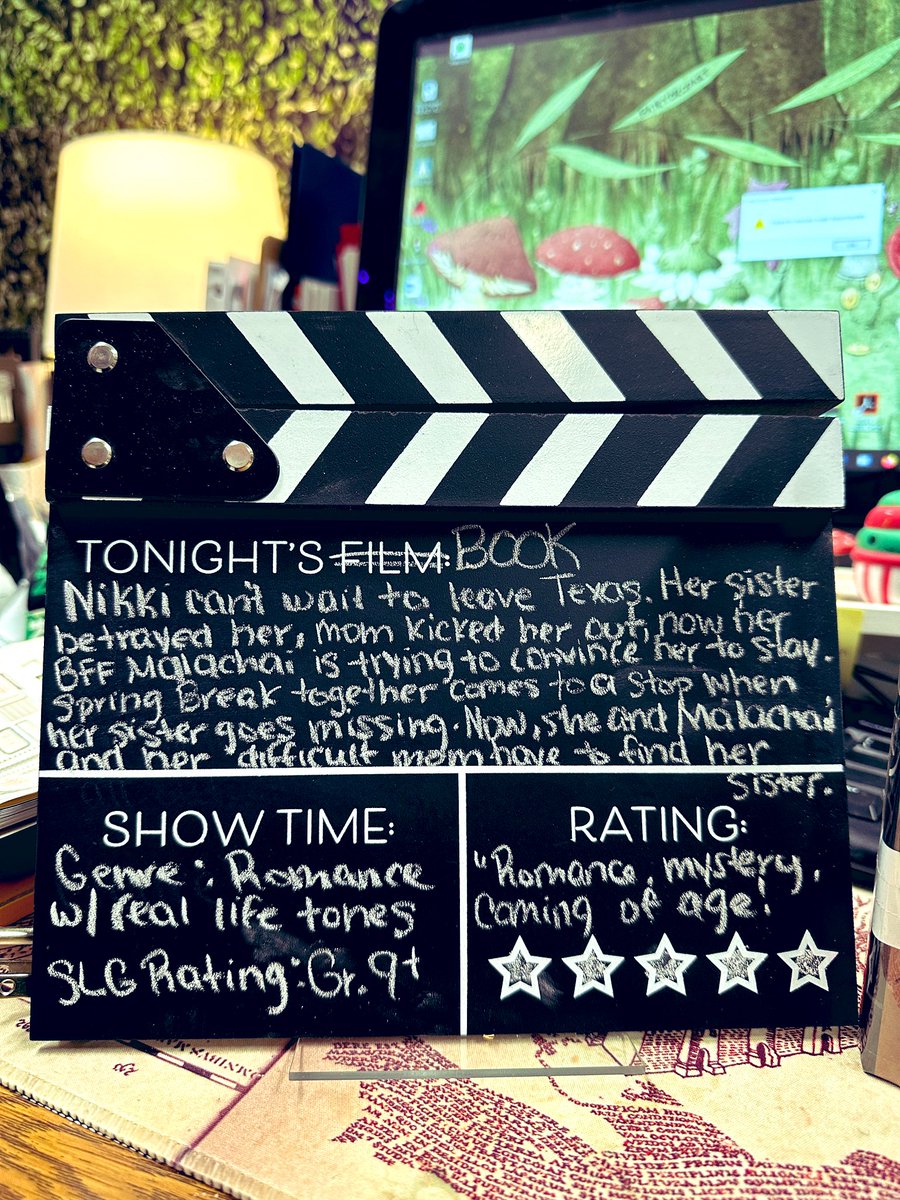 TONIGHT'S FILM: BOOK
Nikki can't wait to leave Texas. Her sister
betrayed her, mom kicked her out, now her
BFF Malachai is trying to convince her to stay.
Spring Break together comes to a stop when
her sister goes missing. Now, she and Malachai
and her difficult mom have to find her
sister.
SHOW TIME:
Genre: Romance
w/ real life tones
SLG Rating: Gr. 9+
RATING:
"Romance, mystery,
Coming of age!